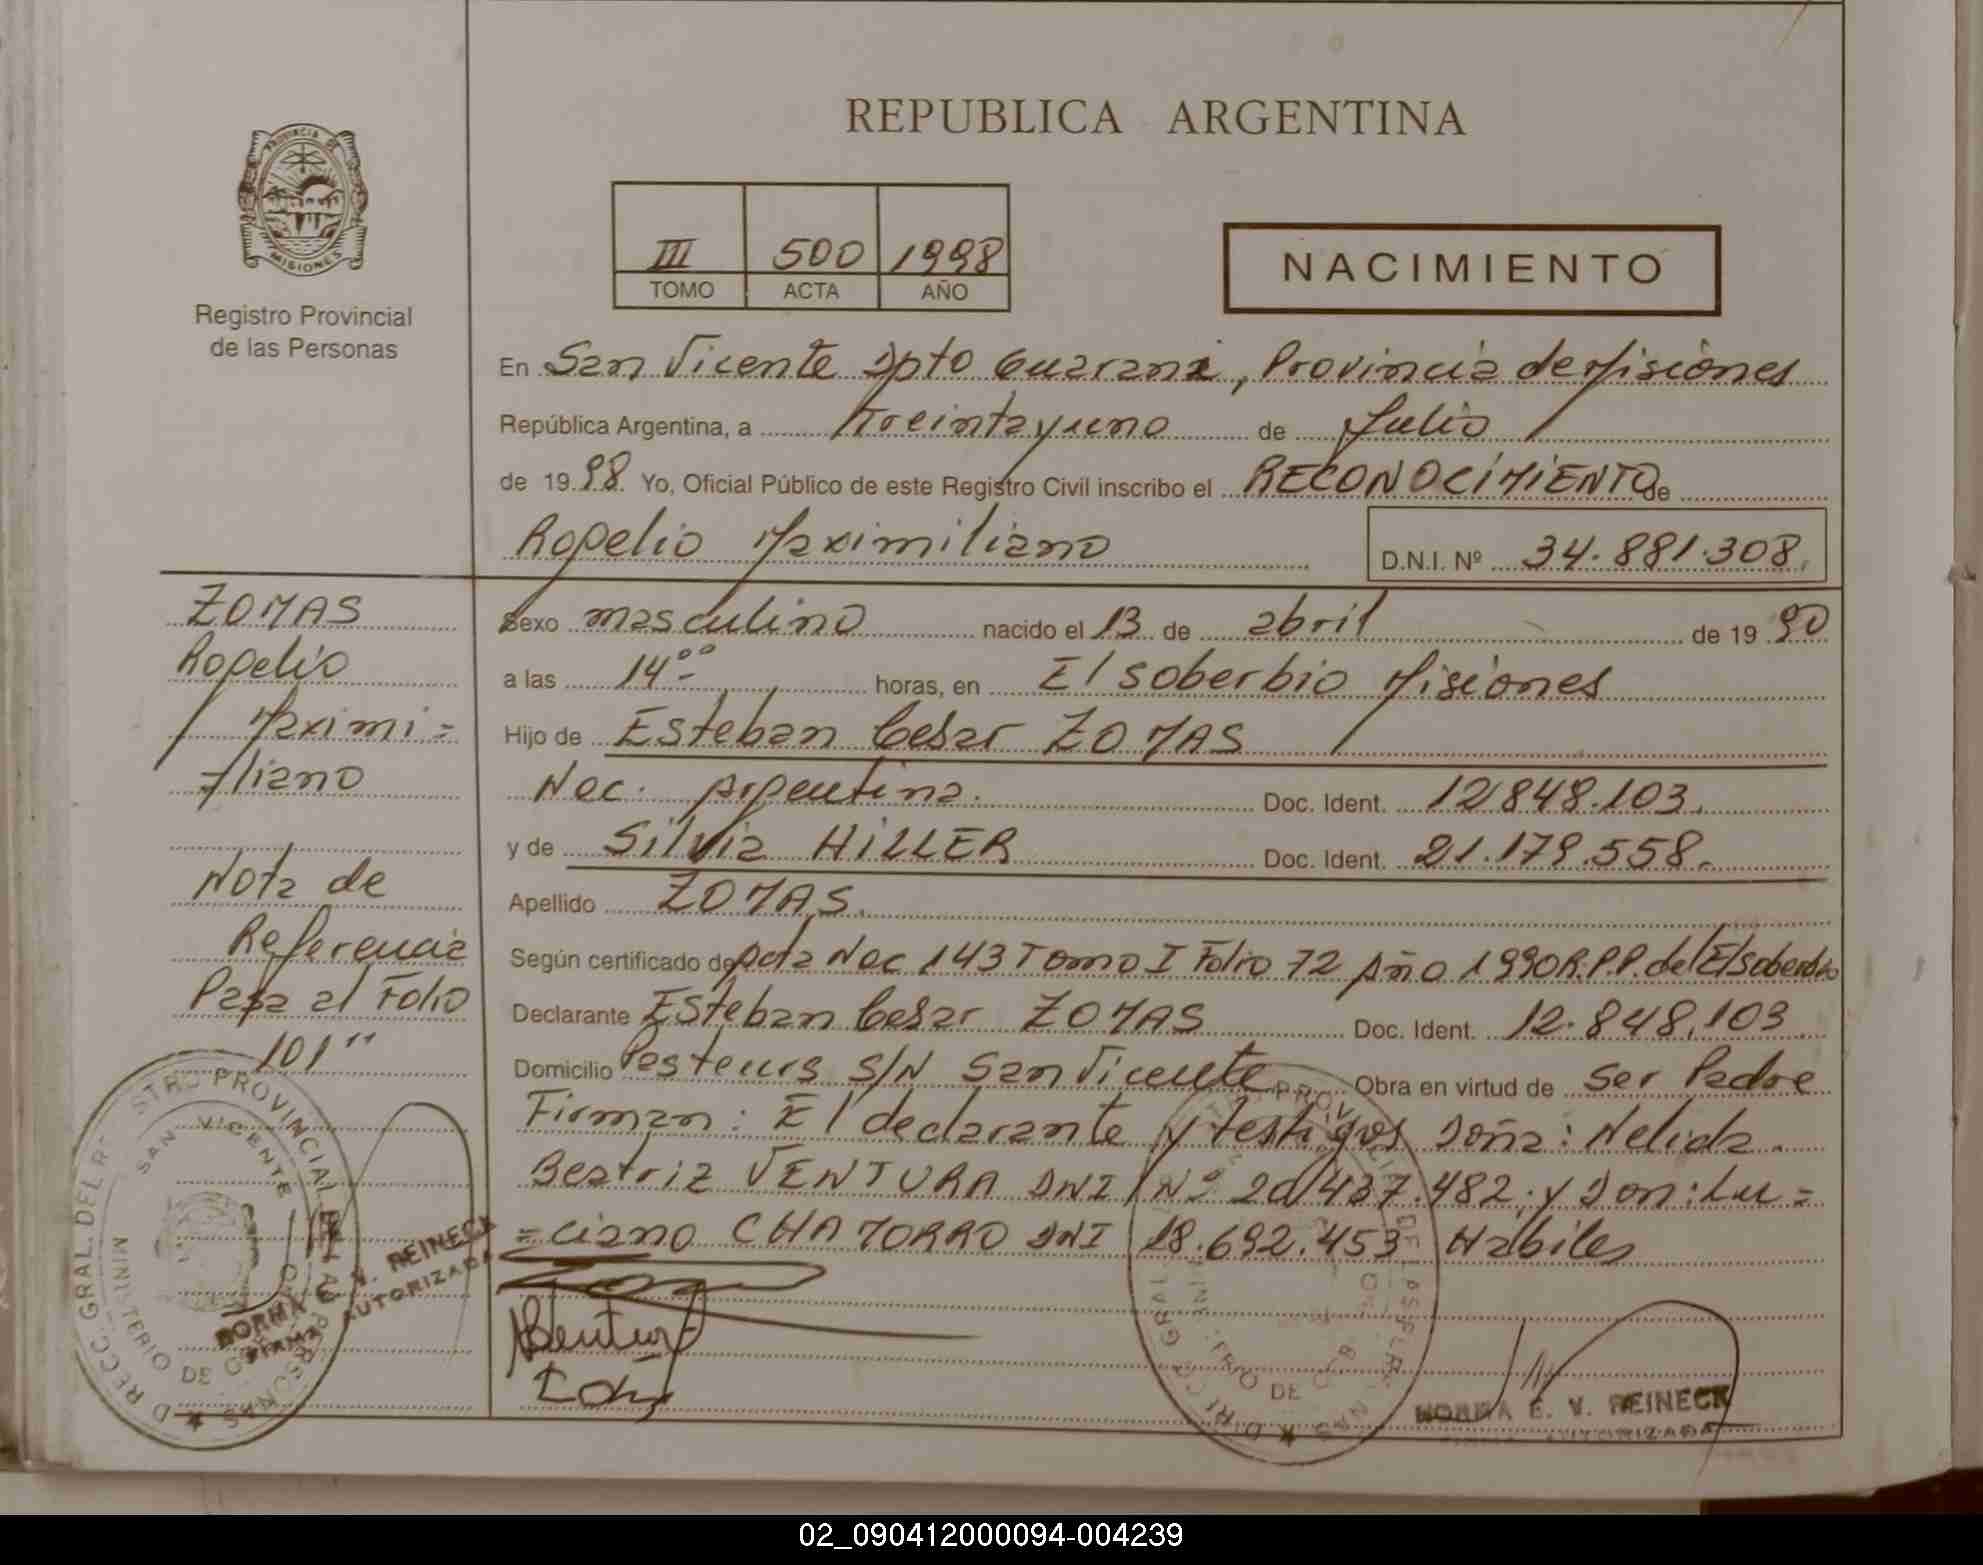 REPUBLICA ARGENTINA
PROVINCIA DE
MISIONES
Registro Provincial
de las Personas
III 500 1998
TOMO ACTA AÑO
NACIMIENTO
En San Vicente Dpto Guarani, Provincia de Misiones
República Argentina, a Treintayuno de Julio
de 1998 Yo, Oficial Público de este Registro Civil inscribo el RECONOCIMIENTO de
Rogelio Maximiliano D.N.I. Nº 34.881.308.
ZOMAS
Rogelio
Maximi=
=liano
Nota de
Referencia
Pasa al Folio
101"
Sexo masculino nacido el 13 de abril de 1990
a las 14°°- horas, en El soberbio Misiones
Hijo de Esteban Cesar ZOMAS
Nac. Argentina. Doc. Ident. 12.848.103.
y de Silvia HILLER Doc. Ident. 21.179.558.
Apellido ZOMAS.
Según certificado de Acta Nac 143 Tomo I Folio 72 Año 1990 R.P.P. del El soberbio
Declarante Esteban Cesar ZOMAS Doc. Ident. 12.848.103
Domicilio Pasteurs S/N San Vicente Obra en virtud de Ser Padre
Firman: El declarante y testigos Doña: Nelida
Beatriz VENTURA DNI Nº 20.437.482; y Don: Lu=
=ciano CHAMORRO DNI 18.692.453 Habiles
NORMA E. V. REINECK
FIRMA AUTORIZADA
NORMA E. V. REINECK
FIRMA AUTORIZADA
02_090412000094-004239